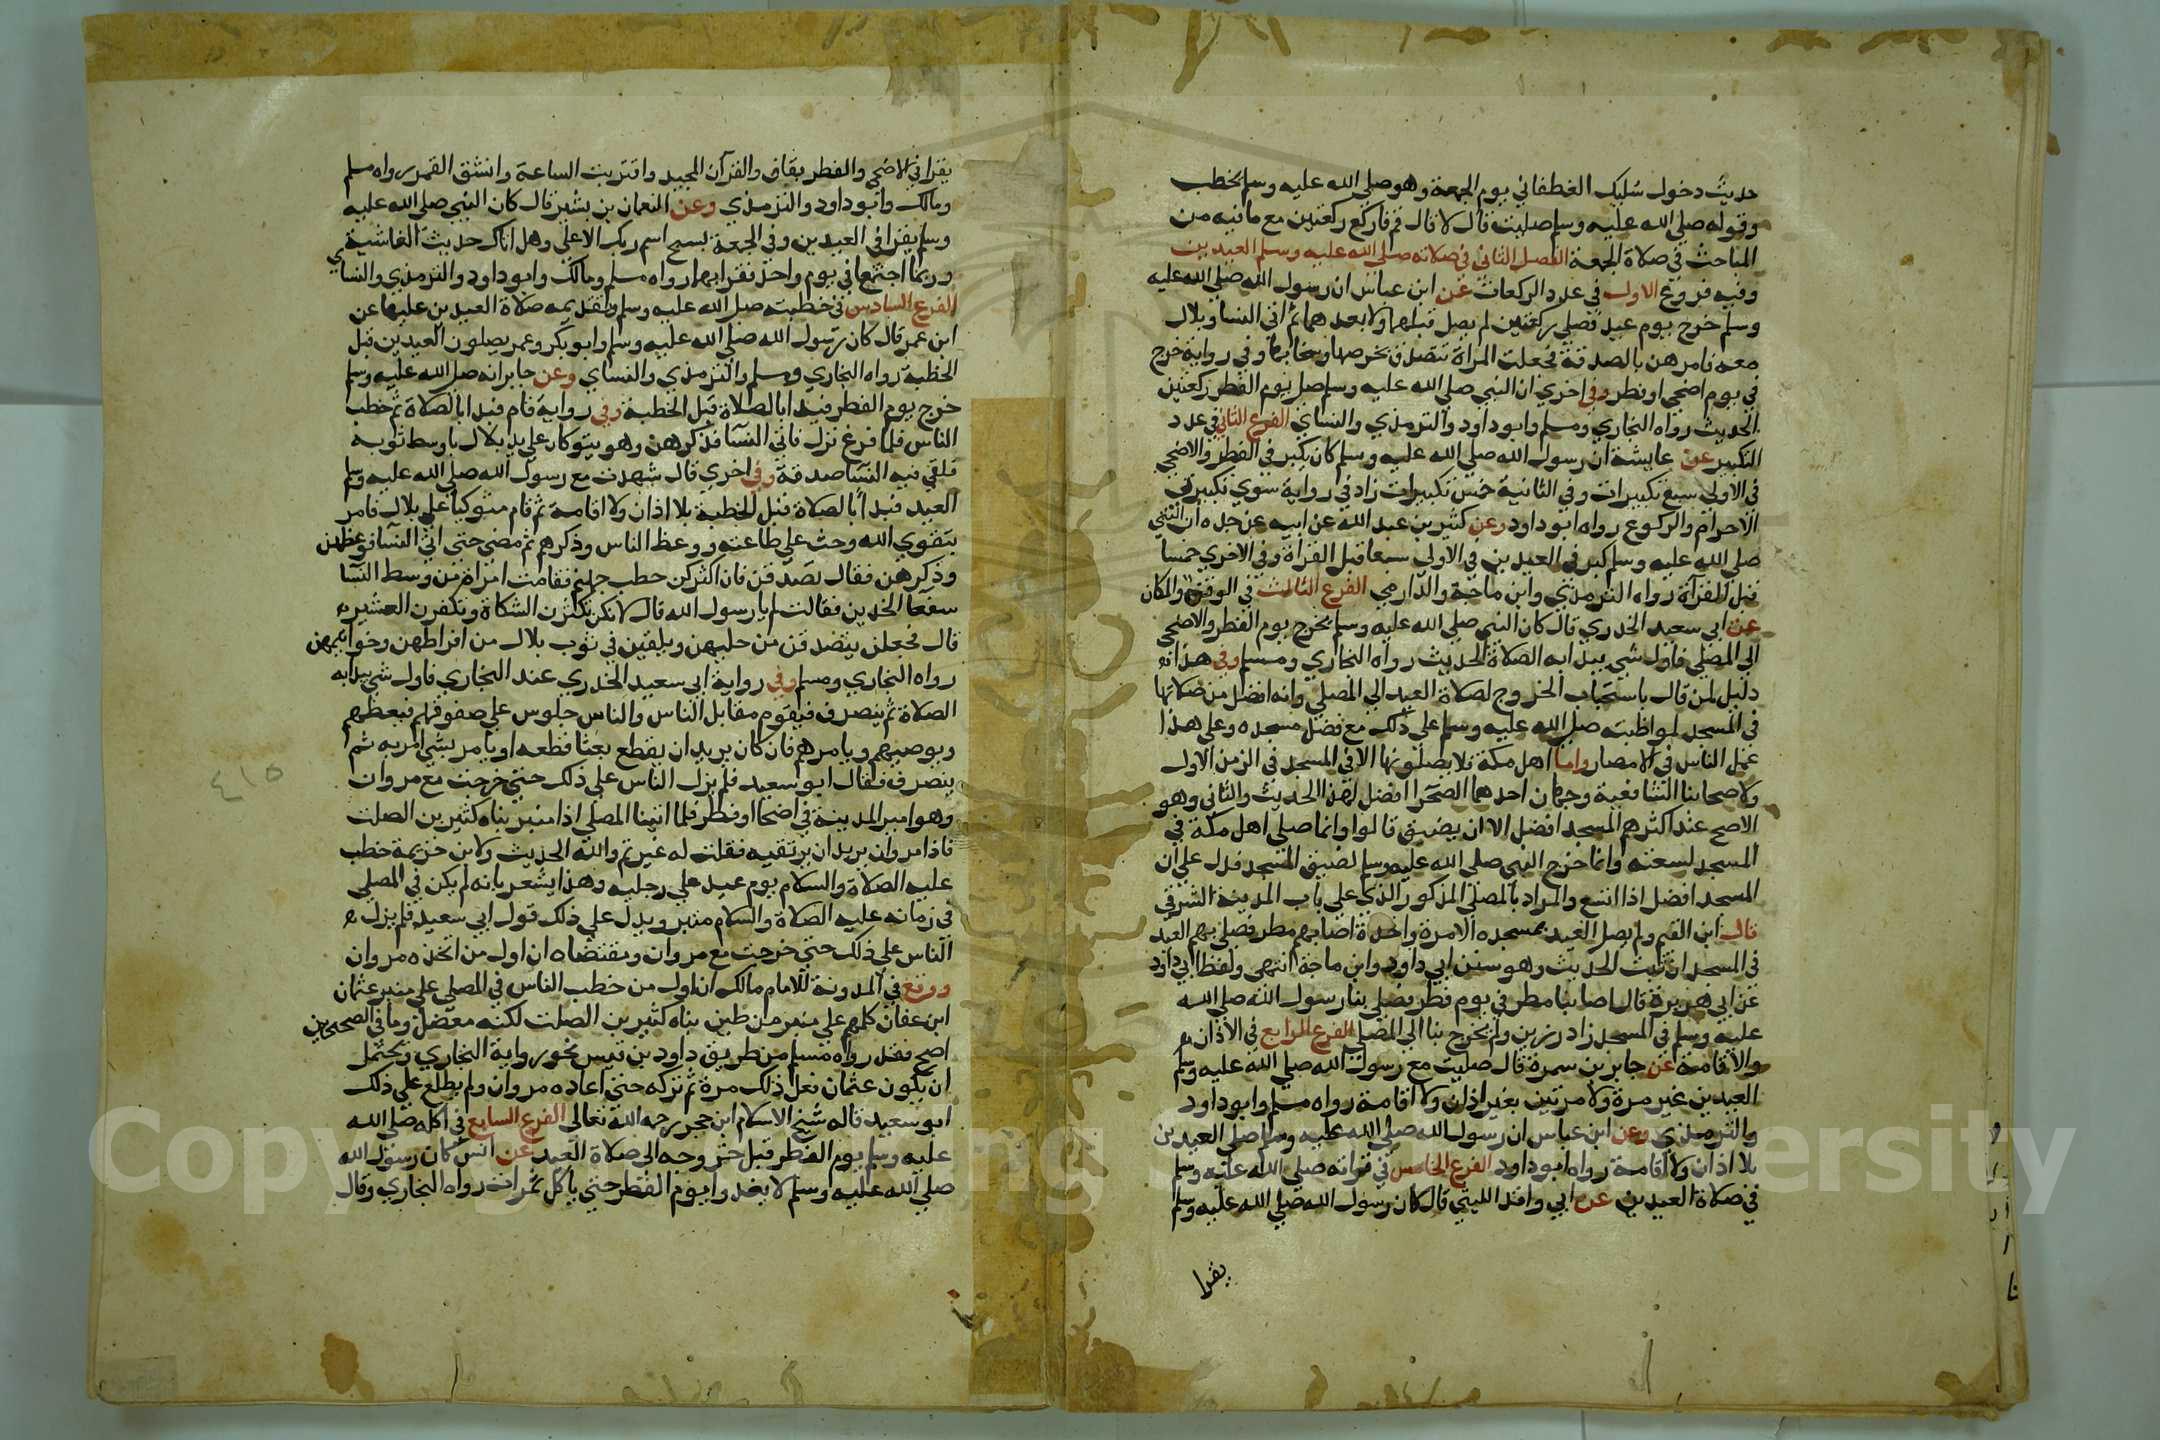 حديث دخول سليك الغطفاني يوم الجمعة وهو صلي الله عليه وسلم يخطب
وقوله صلي الله عليه وسلم صليت قال لا قال قم فاركع ركعتين مع ما فيه من
المباحث في صلاة الجمعة الفصل الثاني في صلاته صلي الله عليه وسلم العيدين
وفيه فروع الاول في عدد الركعات عن ابن عباس ان رسول الله صلي الله عليه
وسلم خرج يوم عيد فصلي ركعتين لم يصل قبلهما ولا بعدهما ثم اتي النسا وبلال
معه فامرهن بالصدقة فجعلت المراة تتصدق بخرصها وسخابها وفي رواية خرج
في يوم اضحي او فطر وفي اخري ان النبي صلي الله عليه وسلم صلي يوم الفطر ركعتين
الحديث رواه البخاري ومسلم وابو داود والترمذي والنساي الفرع الثاني في عدد
التكبير عن عايشة ان رسول الله صلي الله عليه وسلم كان يكبر في الفطر والاضحي
في الاولي سبع تكبيرات وفي الثانية خمس تكبيرات زاد في رواية سوي تكبيرتي
الاحرام والركوع رواه ابو داود وعن كثير بن عبد الله عن ابيه عن جده ان النبي
صلي الله عليه وسلم كبر في العيدين في الاولي سبعا قبل القراة وفي الاخري خمسا
قبل القرآة رواه الترمذي وابن ماجة والدارمي الفرع الثالث في الوقت والمكان
عن ابي سعيد الخدري قال كان النبي صلي الله عليه وسلم يخرج يوم الفطر والاضحي
الي المصلي فاول شي يبدا به الصلاة الحديث رواه البخاري ومسلم وفي هذا انه
دليل لمن قال باستحباب الخروج لصلاة العيد الي المصلي وانه افضل من صلاتها
في المسجد لمواظبته صلي الله عليه وسلم علي ذلك مع فضل مسجده وعلي هذا
عمل الناس في الامصار واما اهل مكة فلا يصلونها الا في المسجد في الزمن الاول
ولاصحابنا الشافعية وجهان احدهما الصحرا افضل لهذا الحديث والثاني وهو
الاصح عند اكثرهم المسجد افضل الا ان يضيق قالوا وانما صلي اهل مكة في
المسجد لسعته وانما خرج النبي صلي الله عليه وسلم لضيق المسجد فدل علي ان
المسجد افضل اذا اتسع والمراد بالمصلي المذكور الذي علي باب المدينة الشرقي
قال ابن القيم ولم يصل العيد بمسجده الا مرة واحدة اصابهم مطر فصلي بهم العيد
في المسجد ان ثبت الحديث وهو سنن ابي داود وابن ماجة انتهي ولفظ ابي داود
عن ابي هريرة قال اصابنا مطر في يوم فطر فصلي بنا رسول الله صلي الله
عليه وسلم في المسجد زاد رزين ولم يخرج بنا الي المصلي الفرع الرابع في الاذان
والاقامة عن جابر بن سمرة قال صليت مع رسول الله صلي الله عليه وسلم
العيدين غير مرة ولا مرتين بغير اذان ولا اقامة رواه مسلم وابو داود
والترمذي وعن ابن عباس ان رسول الله صلي الله عليه وسلم صلي العيدين
بلا اذان ولا اقامة رواه ابو داود الفرع الخامس في قراته صلي الله عليه وسلم
في صلاة العيدين عن ابي واقد الليثي قال كان رسول الله صلي الله عليه وسلم
يقرا
يقرا في الاضحي والفطر بقاف والقرآن المجيد واقتربت الساعة وانشق القمر رواه مسلم
ومالك وابو داود والترمذي وعن النعمان بن بشير قال كان النبي صلي الله عليه
وسلم يقرا في العيدين وفي الجمعة بسبح اسم ربك الاعلي وهل اتاك حديث الغاشية
وربما اجتمعا في يوم واحد فقرا بهما رواه مسلم ومالك وابو داود والترمذي والنساي
الفرع السادس في خطبته صلي الله عليه وسلم وتقديمه صلاة العيدين عليها عن
ابن عمر قال كان رسول الله صلي الله عليه وسلم وابو بكر وعمر يصلون العيدين قبل
الخطبة رواه البخاري ومسلم والترمذي والنساي وعن جابر انه صلي الله عليه وسلم
خرج يوم الفطر فبدا بالصلاة قبل الخطبة وفي رواية قام فبدا بالصلاة ثم خطب
الناس فلما فرغ نزل فاتي النسآ فذكرهن وهو يتوكا علي يد بلال باسط ثوبه
فلقي فيه النسآ صدقة وفي اخري قال شهدت مع رسول الله صلي الله عليه وسلم
العيد فبدا بالصلاة قبل الخطبة بلا اذان ولا اقامة ثم قام متوكيا علي بلال فامر
بتقوي الله وحث علي طاعته ووعظ الناس وذكرهم ثم مضي حتي اتي النسآ فوعظهن
وذكرهن فقال تصدقن فان اكثركن حطب جهنم فقامت امراة من وسط النسآ
سفعا الخدين فقالت لم يا رسول الله قال لانكن تكثرن الشكاة وتكفرن العشير
قال فجعلن يتصدقن من حليهن ويلقين في ثوب بلال من اقراطهن وخواتيمهن
رواه البخاري ومسلم وفي رواية ابي سعيد الخدري عند البخاري فاول شي يبدا به
الصلاة ثم ينصرف فيقوم مقابل الناس والناس جلوس علي صفوفهم فيعظهم
ويوصيهم ويامرهم فان كان يريد ان يقطع بعثا قطعه او يامر بشي امر به ثم
ينصرف فقال ابو سعيد فلم يزل الناس علي ذلك حتي خرجت مع مروان
وهو امير المدينة في اضحا او فطر فلما اتينا المصلي اذا منبر بناه كثير بن الصلت
فاذا مروان يريد ان يرتقيه فقلت له غيرتم والله الحديث ولابن خزيمة خطب
عليه الصلاة والسلام يوم عيد علي رجليه وهذا يشعر بانه لم يكن في المصلي
في زمانه عليه الصلاة والسلام منبر ويدل علي ذلك قول ابي سعيد فلم يزل
الناس علي ذلك حتي خرجت مع مروان ومقتضاه ان اول من اتخذه مروان
ووقع في المدونة للامام مالك ان اول من خطب الناس في المصلي علي منبر عثمان
ابن عفان كلمهم علي منبر من طين بناه كثير بن الصلت لكنه معضل وما في الصحيحين
اصح فقد رواه مسلم من طريق داود بن قيس نحو رواية البخاري ويحتمل
ان يكون عثمان فعل ذلك مرة ثم تركه حتي اعاده مروان ولم يطلع علي ذلك
ابو سعيد قاله شيخ الاسلام ابن حجر رحمه الله تعالي الفرع السابع في اكله صلي الله
عليه وسلم يوم الفطر قبل خروجه الي صلاة العيد عن انس كان رسول الله
صلي الله عليه وسلم لا يغدوا يوم الفطر حتي ياكل تمرات رواه البخاري وقال
٤١٥